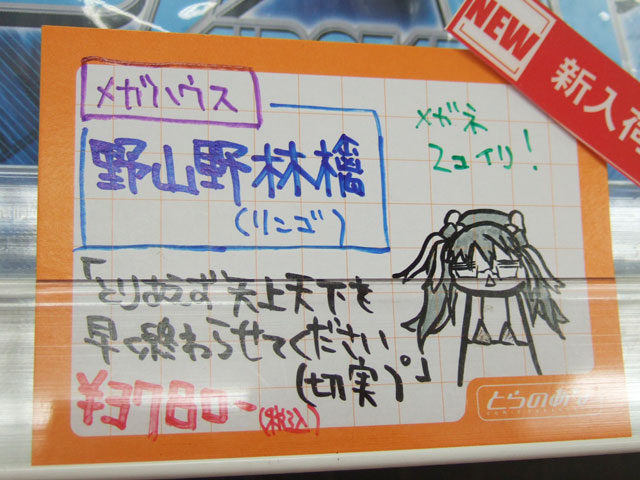 NEW
新入荷
メガハウス
野山野林檎
(リンゴ)
メガネ
2コイリ!
「とりあえず天上天下を
早く終わらせてください
(切実)。」
¥3780-
とらのあな